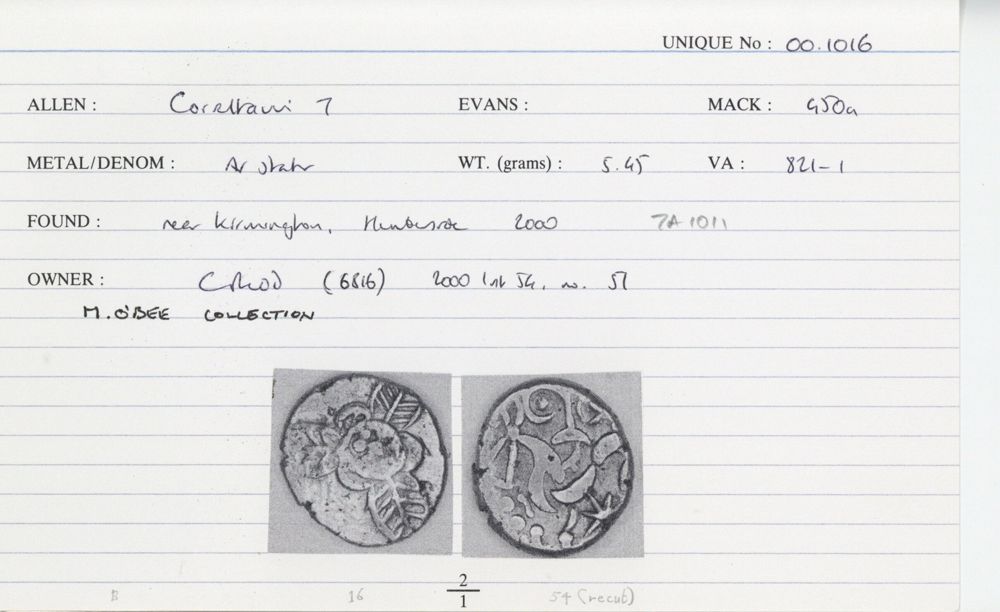 UNIQUE No : 00.1016
ALLEN : Corieltauvi 7 EVANS : MACK : 450a
METAL/DENOM : AV stater WT. (grams) : 5.45 VA : 821-1
FOUND : near Kirmington, Humberside 2000 7A 1011
OWNER : (6816) 2000 54, no. 51
M. O'BEE COLLECTION
2
B 16 1 54 (recut)